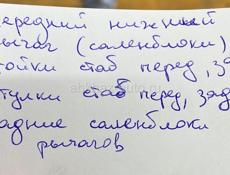 передний нижний
рычаг (саленблоки)
стойки стаб перед, за
втулки стаб перед, зад
задние саленблоки
рычагов